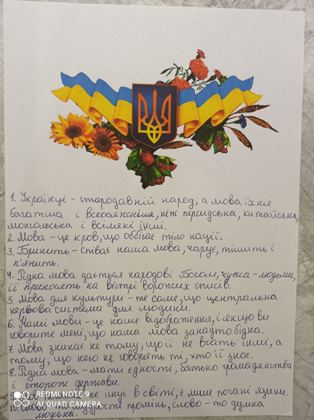 1. Українці - стародавній народ, а мова їхня
багатша і всеосяжніша, ніж перська, китайська,
монгольська і всілякі інші.
2. Мова - це кров, що оббігає тіло нації.
3. Бринить - співає наша мова, чарує, тішить і
п'янить.
4. Рідна мова дається народові Богом, чужа - людьми,
її приносять на вістрі ворожих списів.
5. Мова для культури - те саме, що центральна
нервова система для людини.
6. Наші мови - це наше відображення, і якщо ви
говорите мені, що наша мова занадто бідна.
7. Мова зникає не тому, що її не вчать інші, а
тому, що нею не говорять ті, хто її знає.
8. Рідна мова - мати єдності, батько громадянства
і сторож держави.
не існує в світі, є лише погані язики.
мудрості промінь, слово - то думка
людська
REDMI NOTE 9
AI QUAD CAMERA